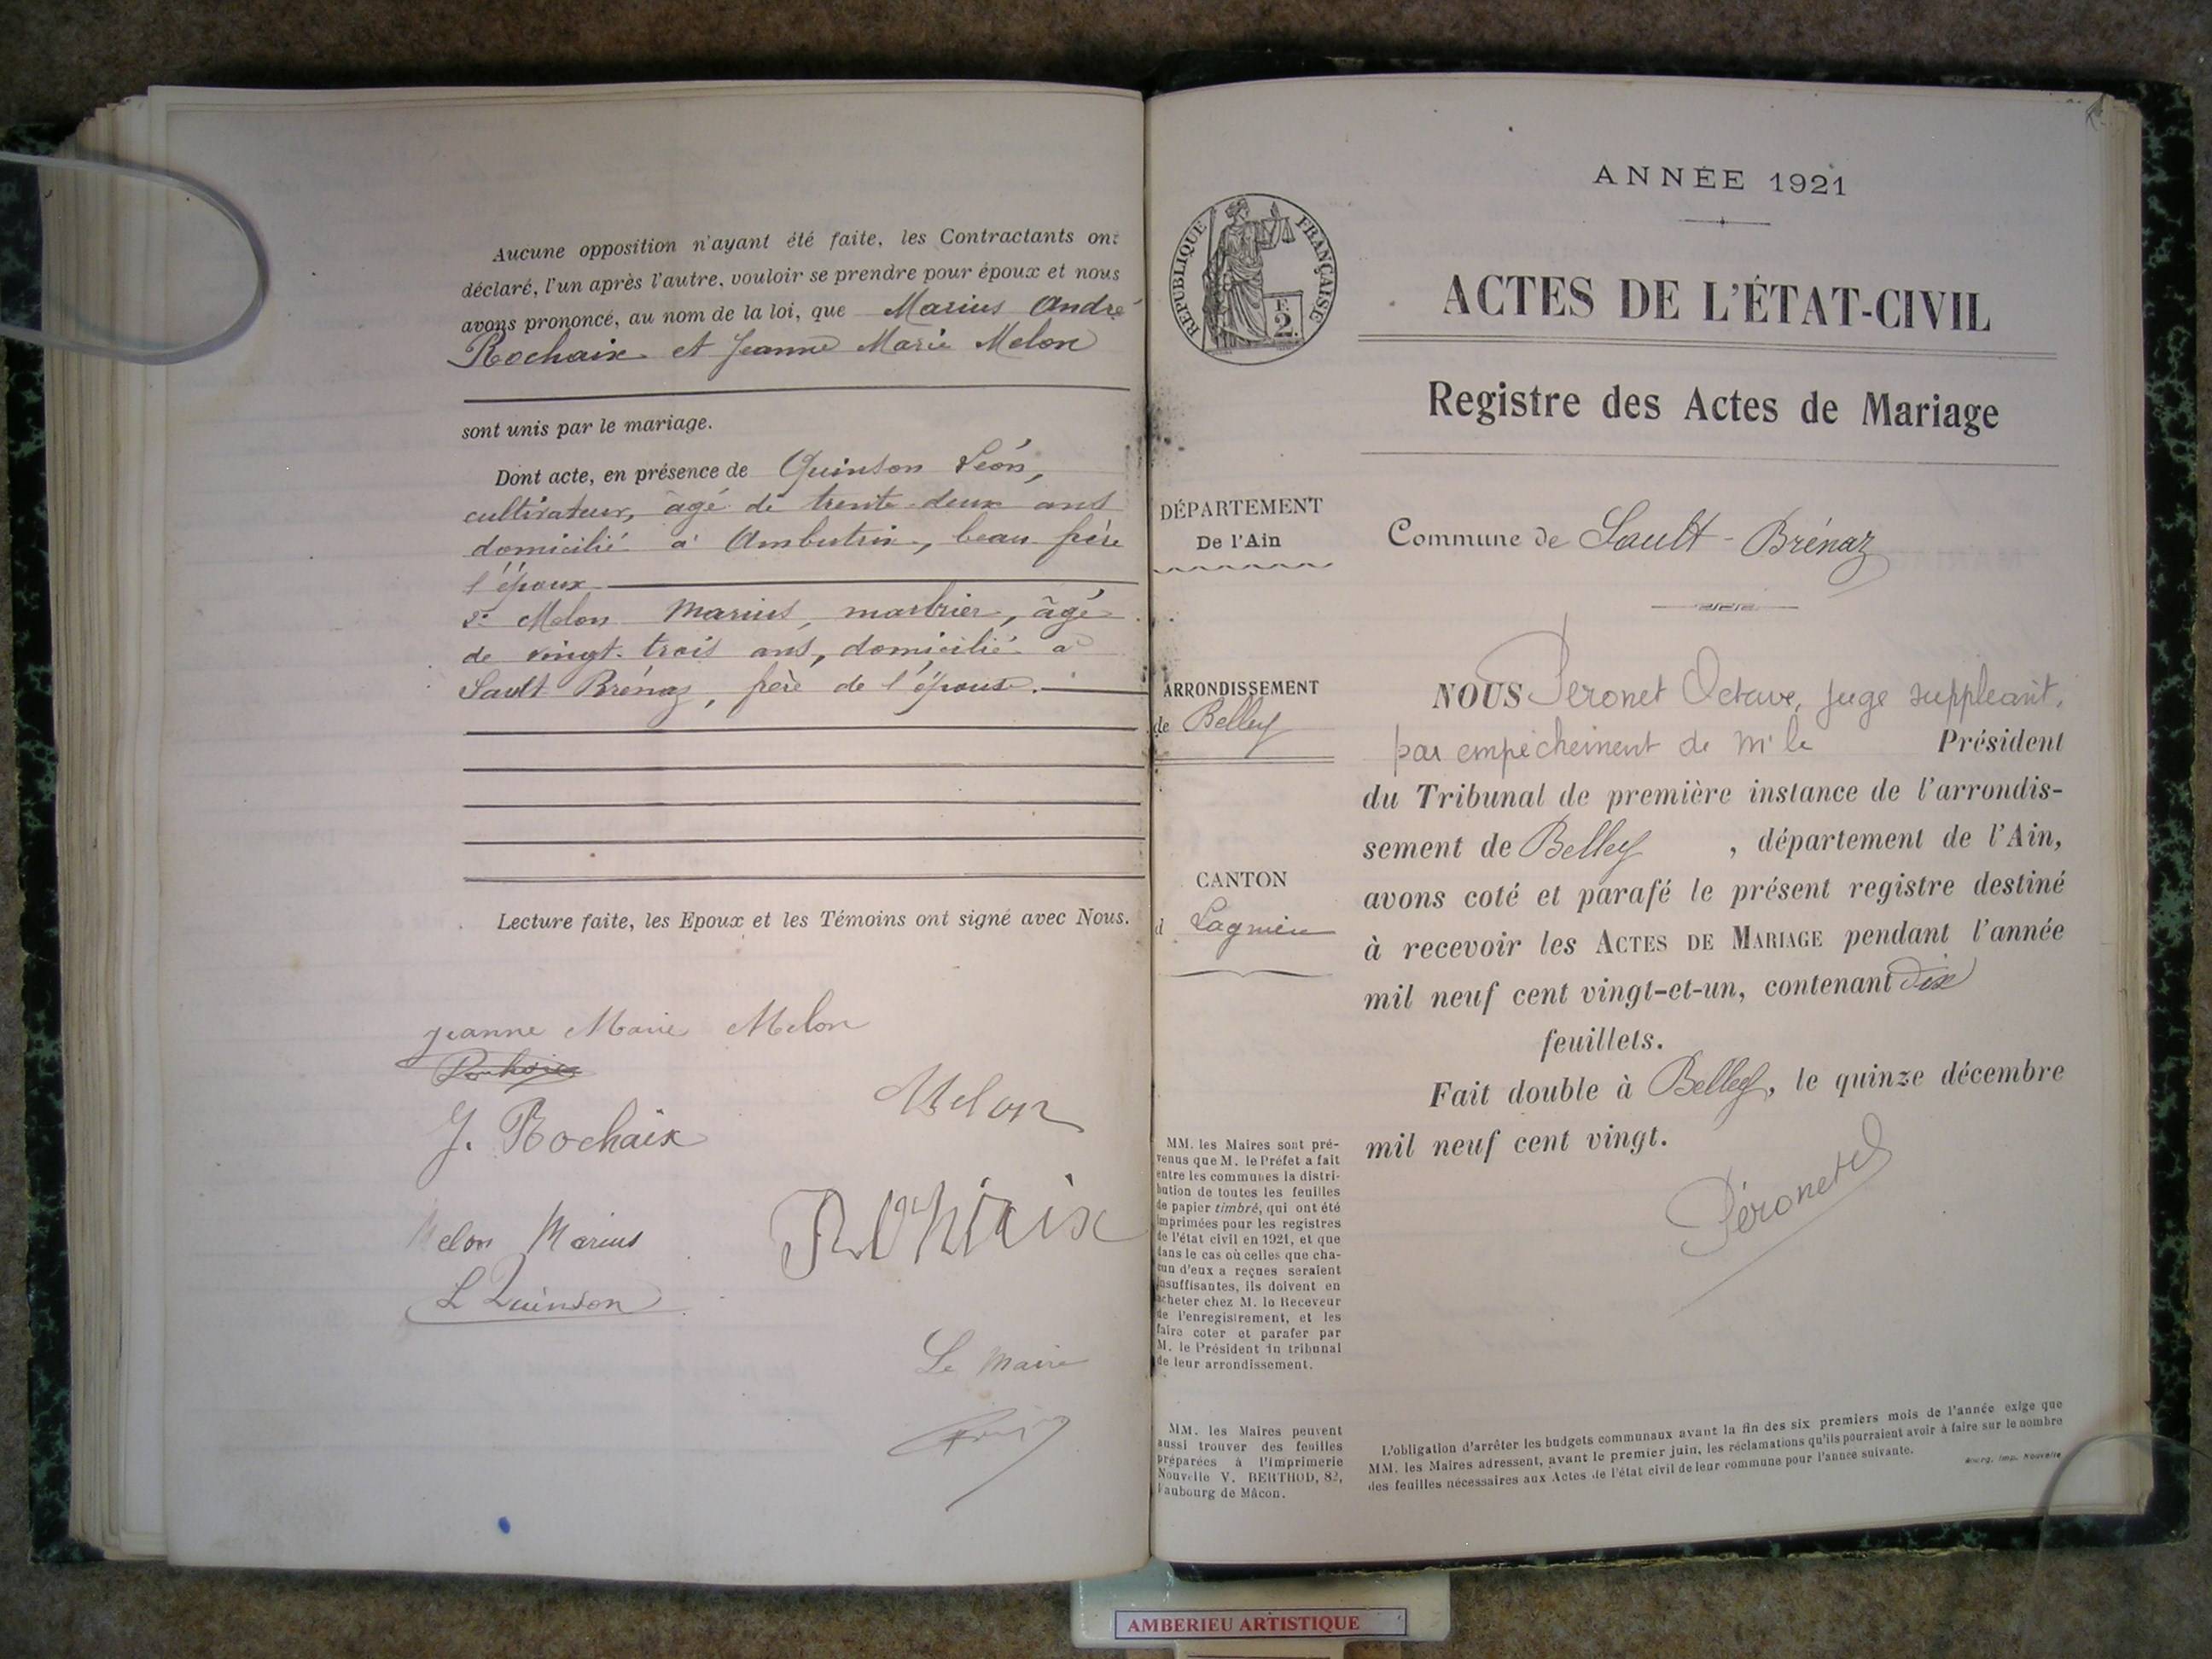 Aucune opposition n'ayant été faite, les Contractants ont
déclaré, l'un après l'autre, vouloir se prendre pour époux et nous
avons prononcé, au nom de la loi, que Marius André
Rochaix et Jeanne Marie Melon
sont unis par le mariage.
Dont acte, en présence de Quinson Léon,
cultivateur, âgé de trente-deux ans
domicilié à Ambutrix, beau frère
l'époux
2º Melon Marius, marbrier, âgé
de vingt-trois ans, domicilié à
Sault Brénaz, frère de l'épouse.
Lecture faite, les Epoux et les Témoins ont signé avec Nous.
Jeanne Marie Melon
Melon
J. Rochaix
Rochaix
Melon Marius
L Quinson
Le Maire
ANNÉE 1921
RÉPUBLIQUE FRANÇAISE
F.
2.
ACTES DE L'ÉTAT-CIVIL
Registre des Actes de Mariage
DÉPARTEMENT
De l'Ain
Commune de Sault-Brénaz
ARRONDISSEMENT
de Belley
CANTON
d Lagnieu
NOUS Peronet Octave, juge suppleant,
par empêchement de Mr le Président
du Tribunal de première instance de l'arrondis-
sement de Belley, département de l'Ain,
avons coté et parafé le présent registre destiné
à recevoir les ACTES DE MARIAGE pendant l'année
mil neuf cent vingt-et-un, contenant dix
feuillets.
Fait double à Belley, le quinze décembre
mil neuf cent vingt.
Péronet
MM. les Maires sont pré-
venus que M. le Préfet a fait
entre les communes la distri-
bution de toutes les feuilles
de papier timbré, qui ont été
imprimées pour les registres
de l'état civil en 1921, et que
dans le cas où celles que cha-
cun d'eux a reçues seraient
insuffisantes, ils doivent en
acheter chez M. le Receveur
de l'enregistrement, et les
faire coter et parafer par
M. le Président du tribunal
de leur arrondissement.
MM. les Maires peuvent
aussi trouver des feuilles
préparées à l'imprimerie
Nouvelle V. BERTHOD, 82,
Faubourg de Mâcon.
L'obligation d'arrêter les budgets communaux avant la fin des six premiers mois de l'année exige que
MM. les Maires adressent, avant le premier juin, les réclamations qu'ils pourraient avoir à faire sur le nombre
des feuilles nécessaires aux Actes de l'état civil de leur commune pour l'année suivante.
Bourg, Imp. Nouvelle
AMBERIEU ARTISTIQUE